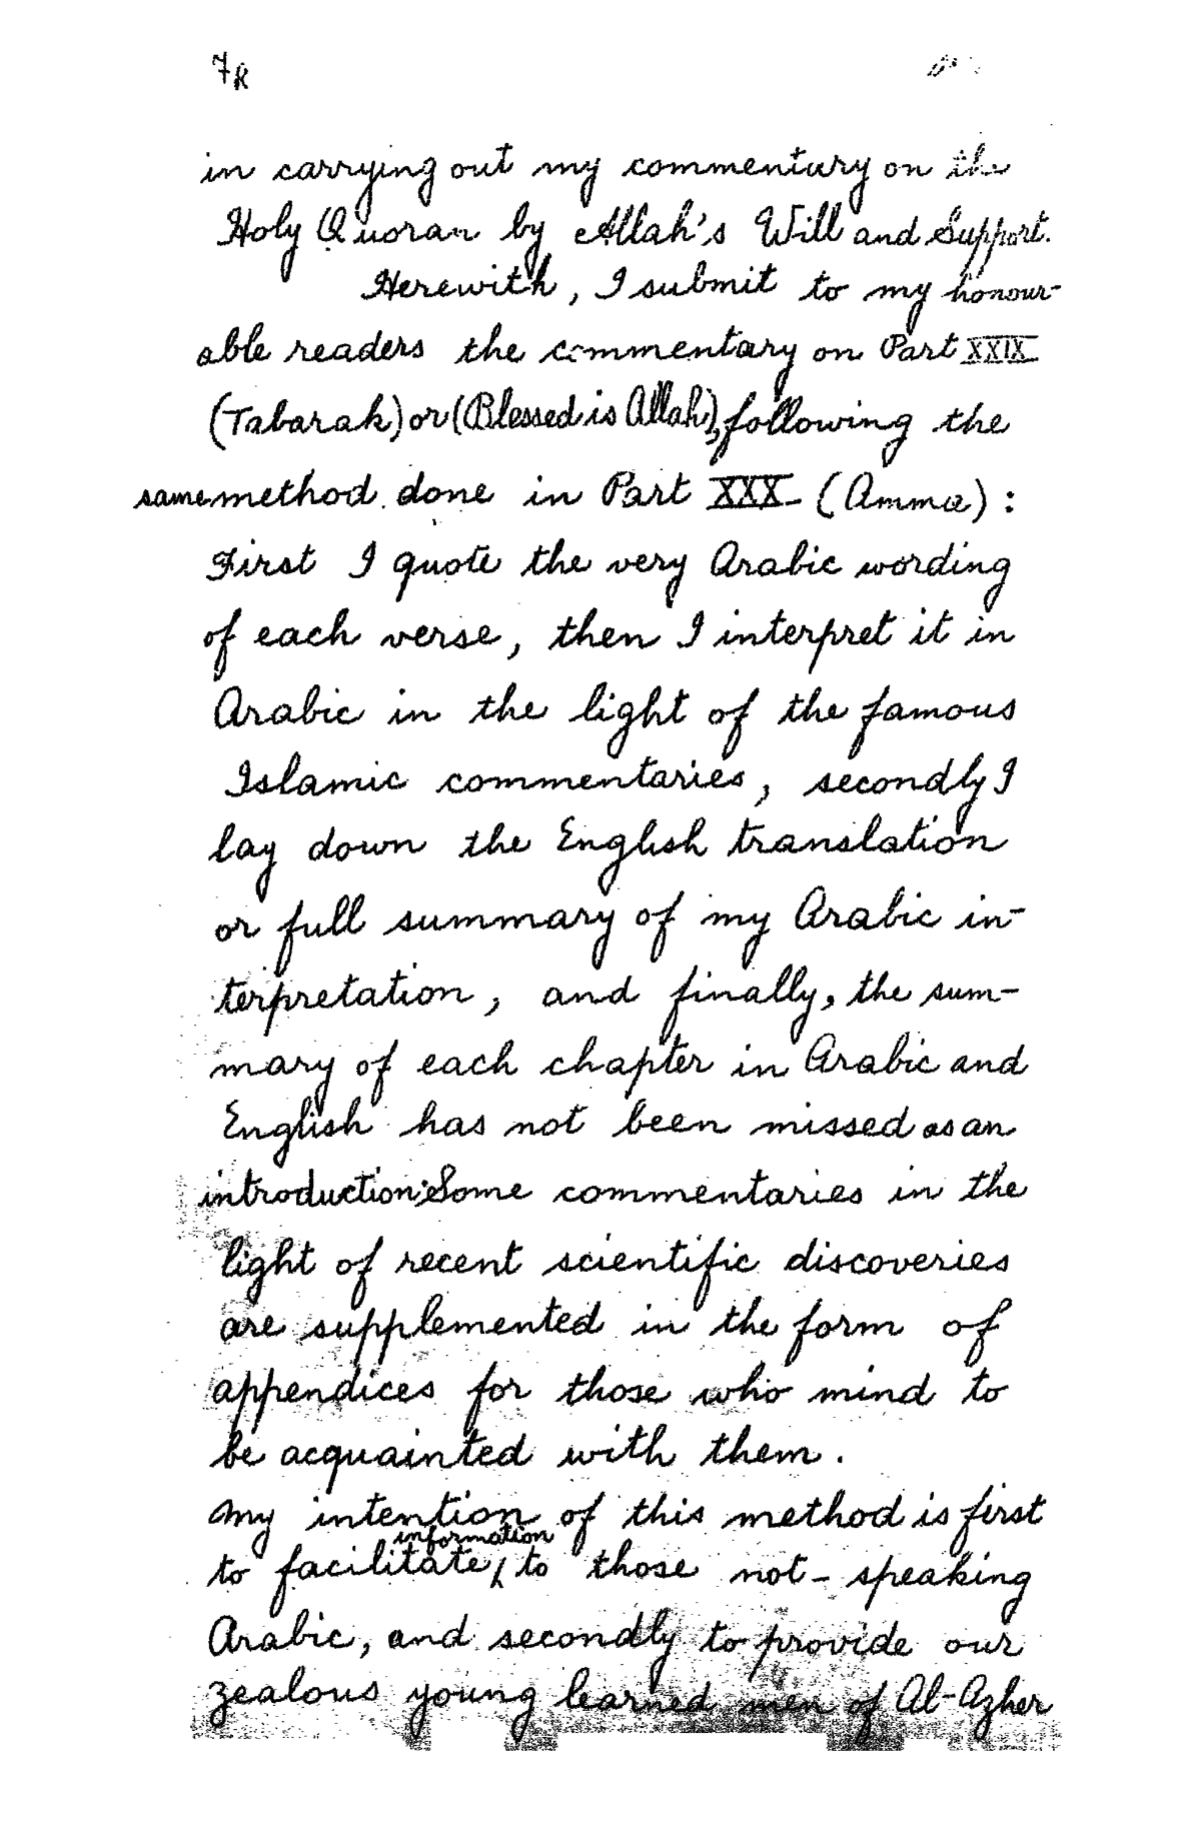 7k
in carrying out my commentary on the
Holy Quoran by Allah's Will and Support.
Herewith, I submit to my honour-
able readers the commentary on Part XXIX
(Tabarak) or (Blessed is Allah), following the
same method done in Part XXX (Amma) :
First I quote the very Arabic wording
of each verse, then I interpret it in
Arabic in the light of the famous
Islamic commentaries, secondly I
lay down the English translation
or full summary of my Arabic in-
terpretation, and finally, the sum-
mary of each chapter in Arabic and
English has not been missed as an
introduction: Some commentaries in the
light of recent scientific discoveries
are supplemented in the form of
appendices for those who mind to
be acquainted with them.
My intention of this method is first
information
to facilitate, to those not-speaking
Arabic, and secondly to provide our
zealous young learned men of Al-Azher